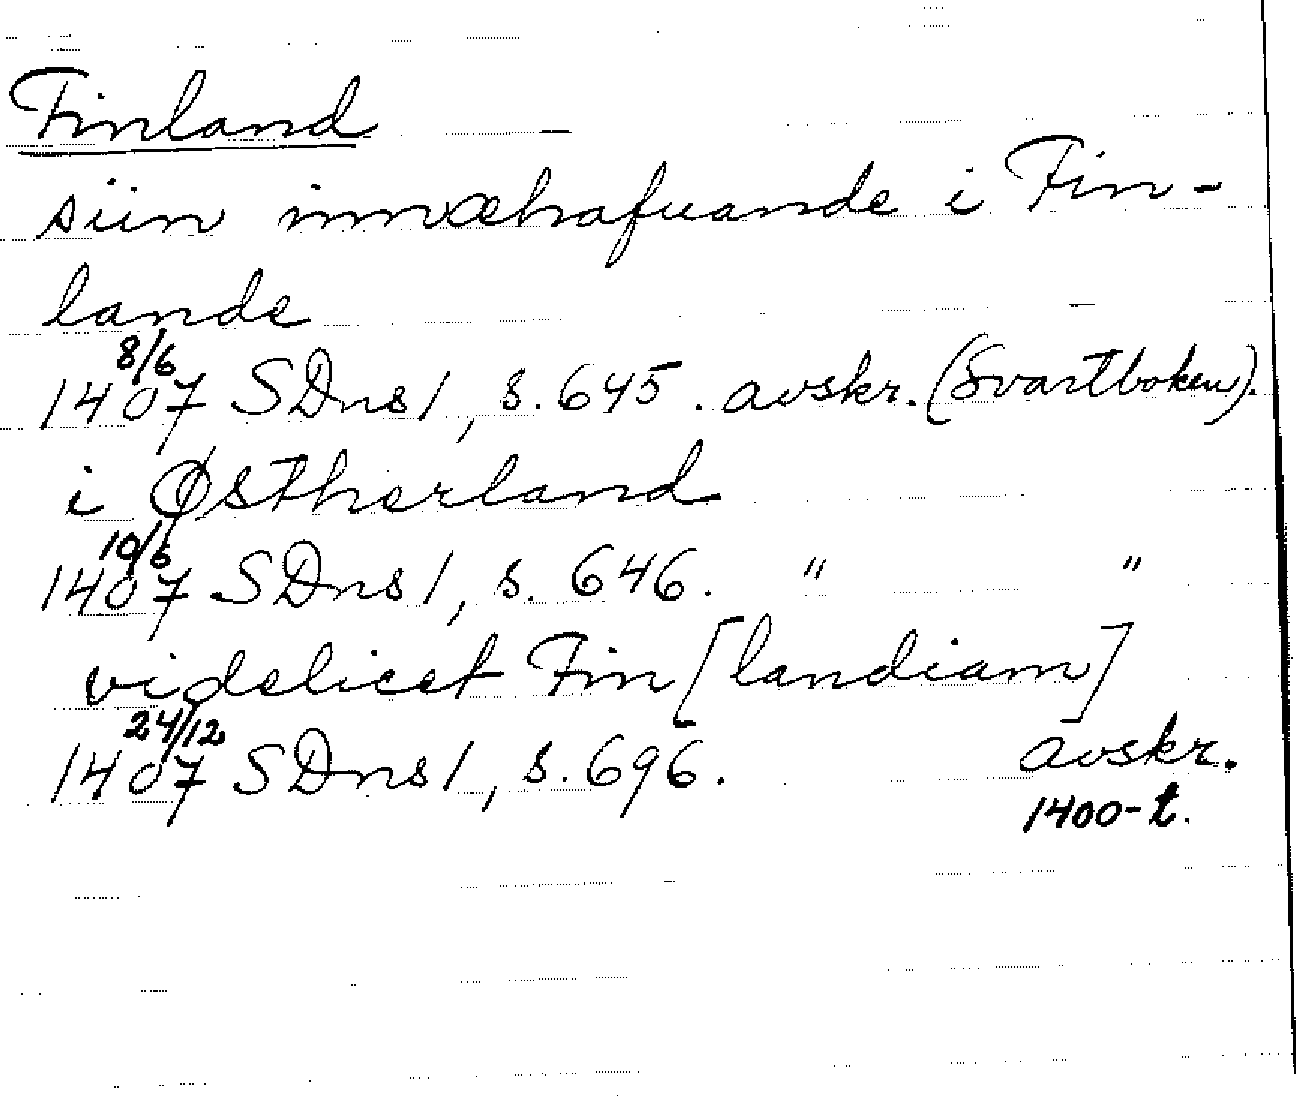 Finland
siin innæhafuande i Fin-
lande
8/6
1407 SDns1, s. 645. avskr. (Svartboken).
i Østherland
10/6
1407 SDns1, s. 646. " "
videlicet Fin[landiam]
24/12
1407 SDns1, s. 696. avskr.
1400-t.